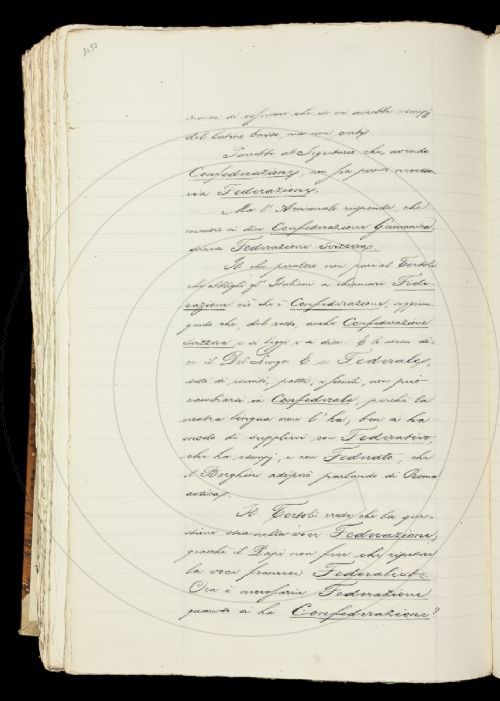 1050
di che se ne avrebbe esempj
del latino basso, ma non certi.
Parrebbe al Segretario che, avendo
Confederazione, non sia punto necessa-
ria Federazione.
Ma l'Arciconsolo risponde che
a dire Confederazione Germanica,
Federazione Svizzera.
Il che peraltro non pare al Tortoli
che obblighi gl'Italiani a chiamare Fede-
razione ciò che è Confederazione, aggiun-
gendo che, del resto, anche Confederazione
Svizzera e si legge e si dice. E lo stesso di-
ce il Del Lungo. E se Federale,
detto di patti, e simili, non può
cambiarsi in Confederale, perchè la
nostra lingua non l'ha, ben ci ha
modo di supplirvi con Federativo,
che ha esempj, e con Federato, che
il Borghini adoperò parlando di Roma
antica.
Il Tortoli crede che la que-
stione stia nella voce Federazione,
giacchè il Papi non fece che ripetere
la voce francese Federaliste.
Ora è necessaria Federazione
quando si ha Confederazione?